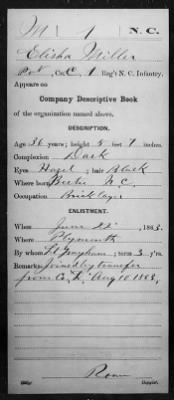 M | 1 | N.C.
Elisha Miller
Pvt, Co. C, 1 Reg't N. C. Infantry.
Appears on
Company Descriptive Book
of the organization named above.
DESCRIPTION.
Age 36 years; height 5 feet 7 inches.
Complexion Dark
Eyes Hazel; hair Black
Where born Bertie N.C.
Occupation Bricklayer
ENLISTMENT.
When June 22, 1863.
Where Plymouth
By whom Lt. ; term 3 y'rs.
Remarks: Joined by transfer
from Co. Aug 10 1863,
Copyist.